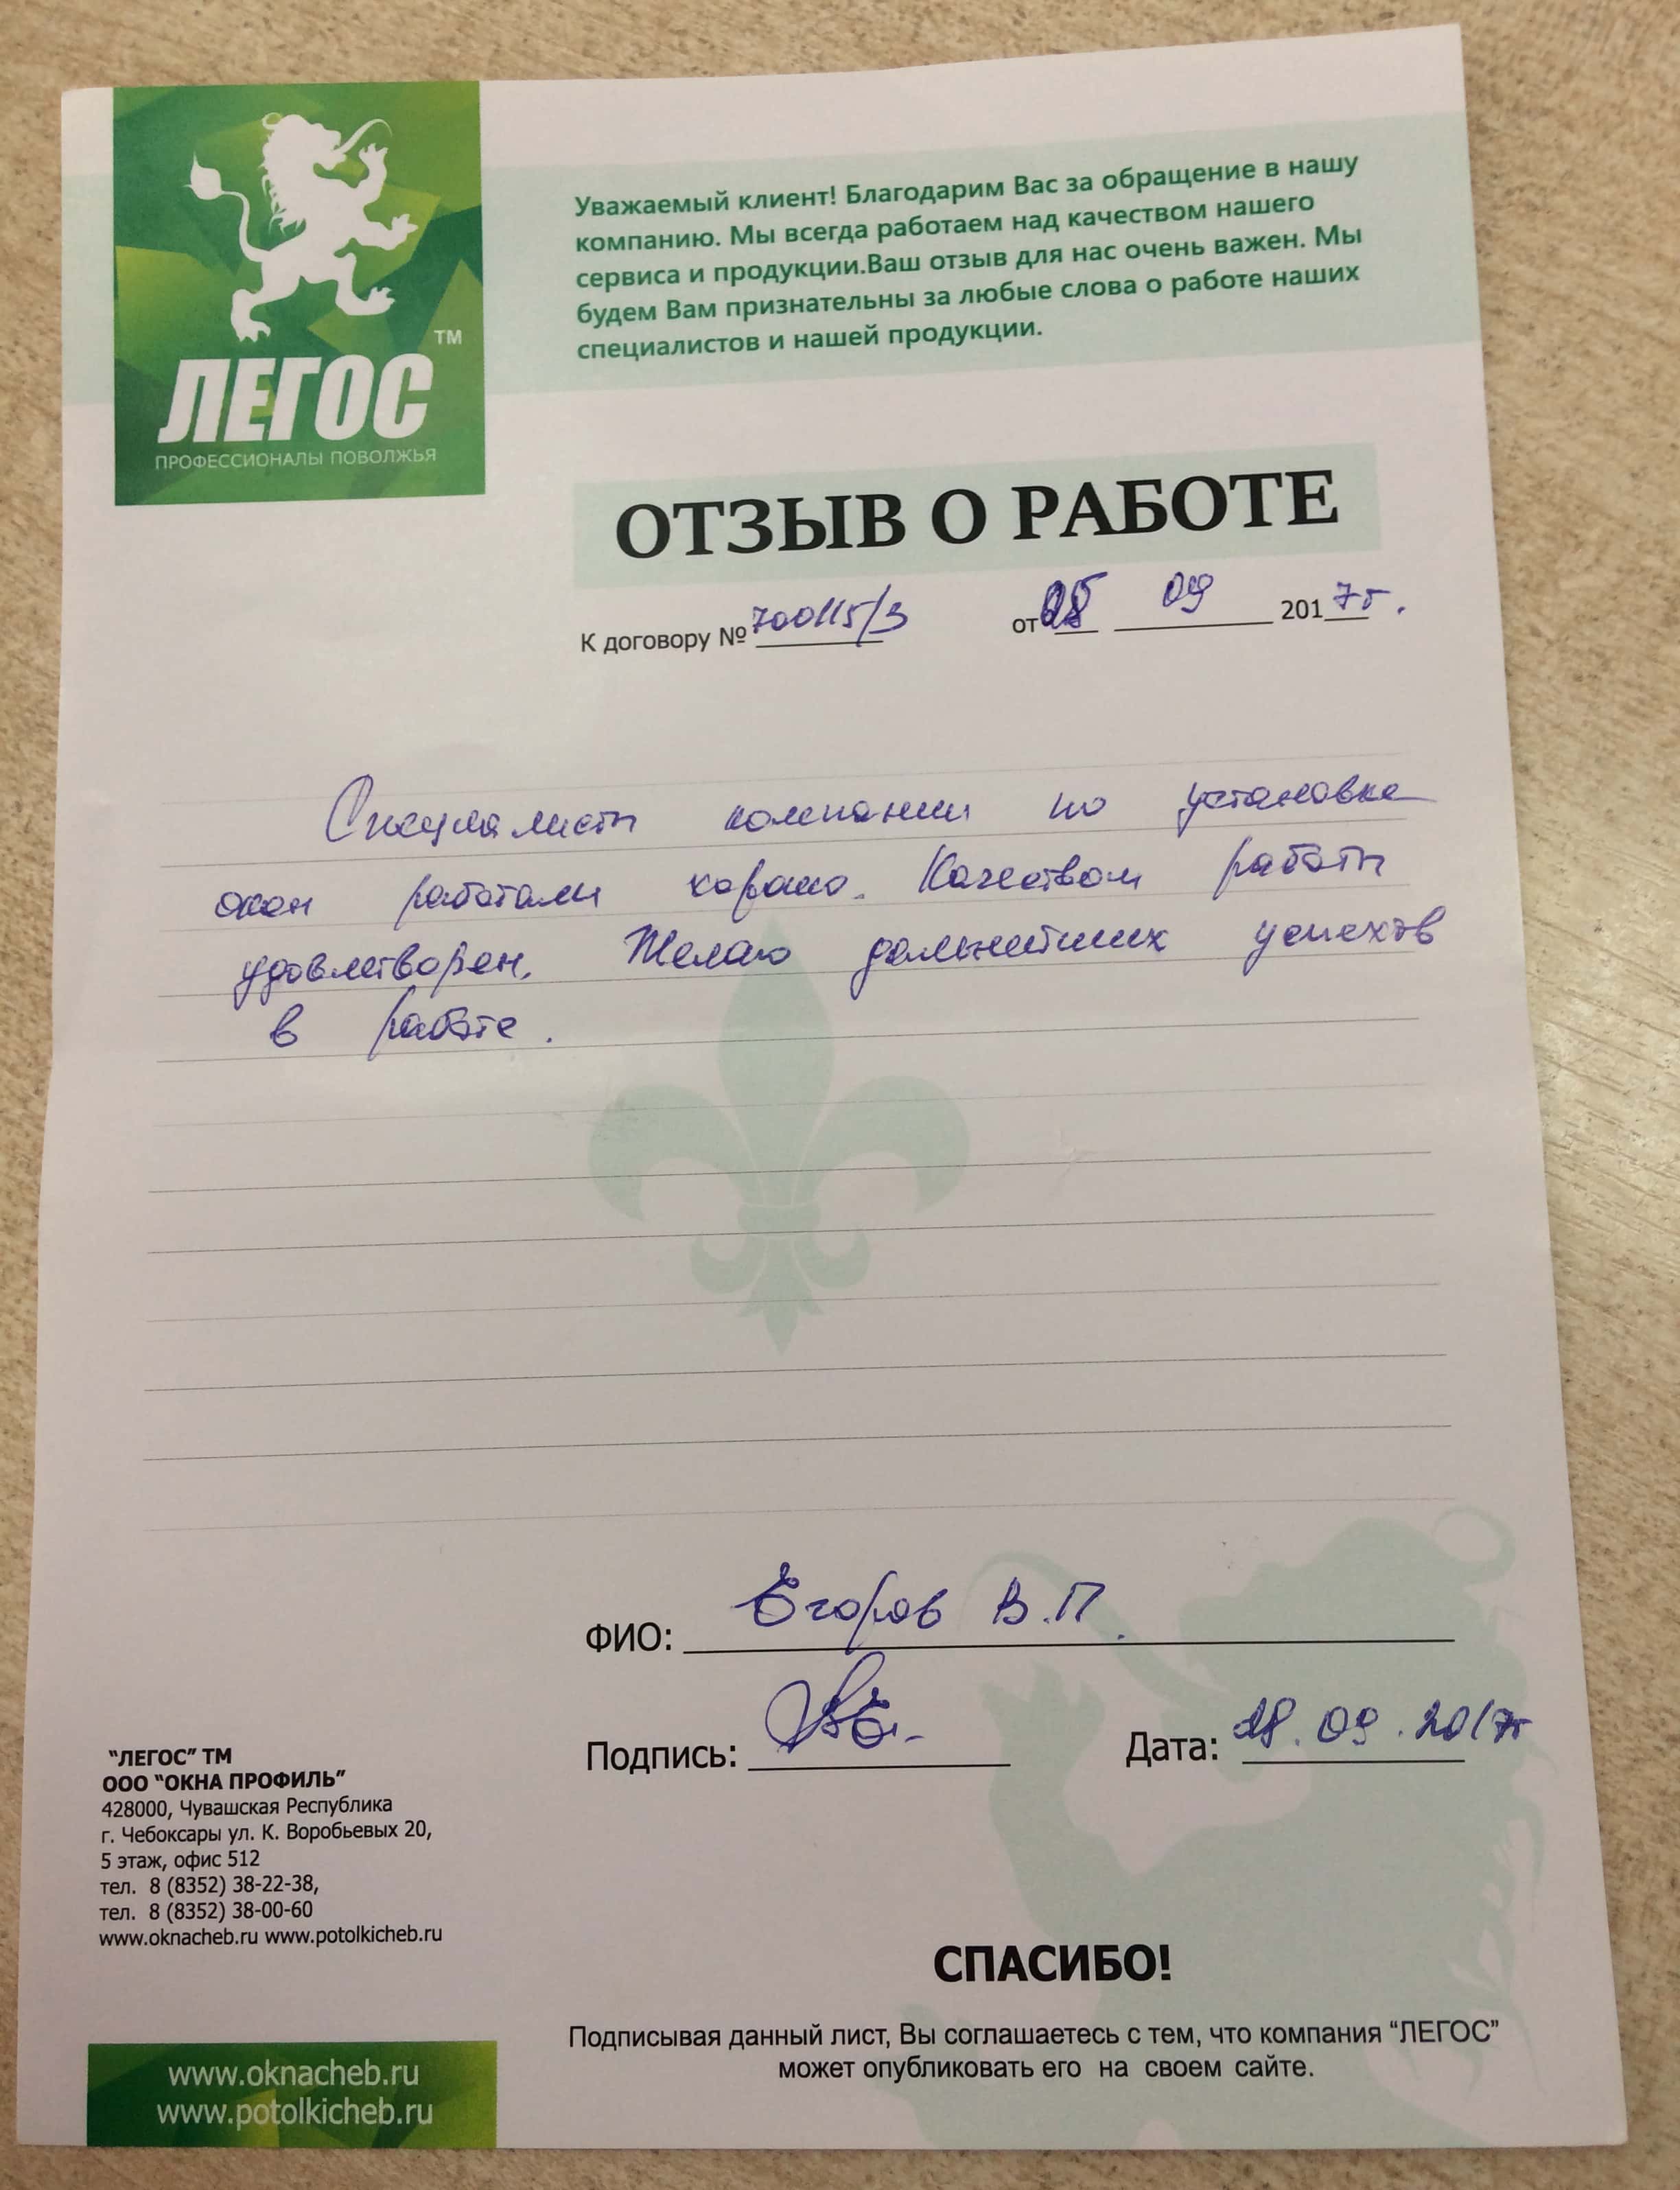 ЛЕГОС ТМ
ПРОФЕССИОНАЛЫ ПОВОЛЖЬЯ
Уважаемый клиент! Благодарим Вас за обращение в нашу
компанию. Мы всегда работаем над качеством нашего
сервиса и продукции.Ваш отзыв для нас очень важен. Мы
будем Вам признательны за любые слова о работе наших
специалистов и нашей продукции.
ОТЗЫВ О РАБОТЕ
К договору № 700115/3 от 09 2017г.
Специалисты компании по установке
окон работали хорошо. Качеством работы
удовлетворен. Желаю дальнейших успехов
в работе.
ФИО: Егоров В.П.
Подпись: Дата: 28.09.2017г
"ЛЕГОС" ТМ
ООО "ОКНА ПРОФИЛЬ"
428000, Чувашская Республика
г. Чебоксары ул. К. Воробьевых 20,
5 этаж, офис 512
тел. 8 (8352) 38-22-38,
тел. 8 (8352) 38-00-60
www.oknacheb.ru www.potolkicheb.ru
СПАСИБО!
Подписывая данный лист, Вы соглашаетесь с тем, что компания "ЛЕГОС"
может опубликовать его на своем сайте.
www.oknacheb.ru
www.potolkicheb.ru